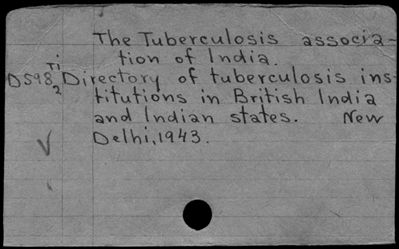 The Tuberculosis associa-
tion of India.
Ti
D598 Directory of tuberculosis ins-
2
titutions in British India
and Indian states. New
Delhi, 1943.